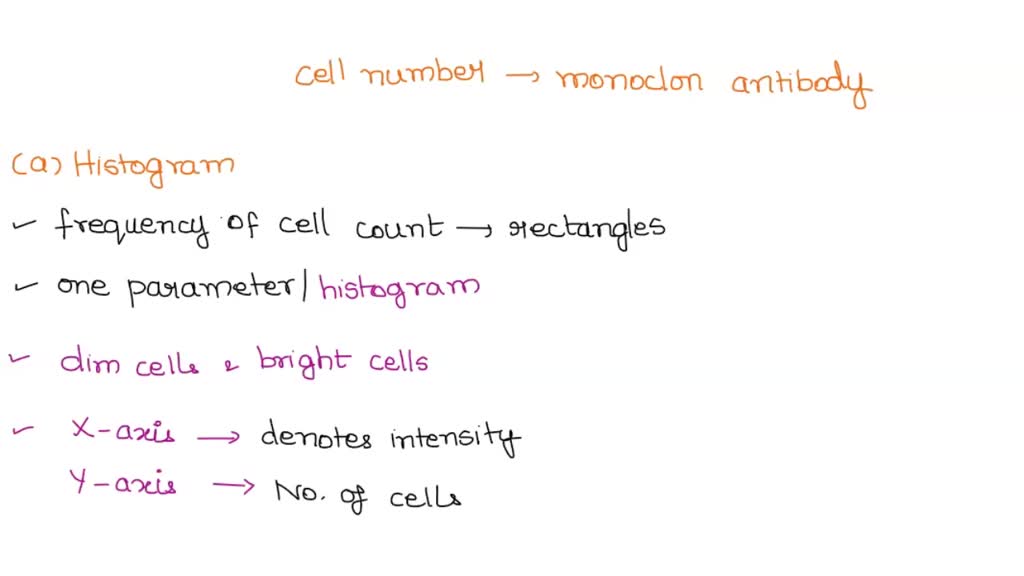 cell number → monoclon antibody
(a) Histogram
✓ frequency of cell count → rectangles
✓ one parameter/histogram
✓ dim cells & bright cells
✓ X-axis → denotes intensity
Y-axis → No. of cells